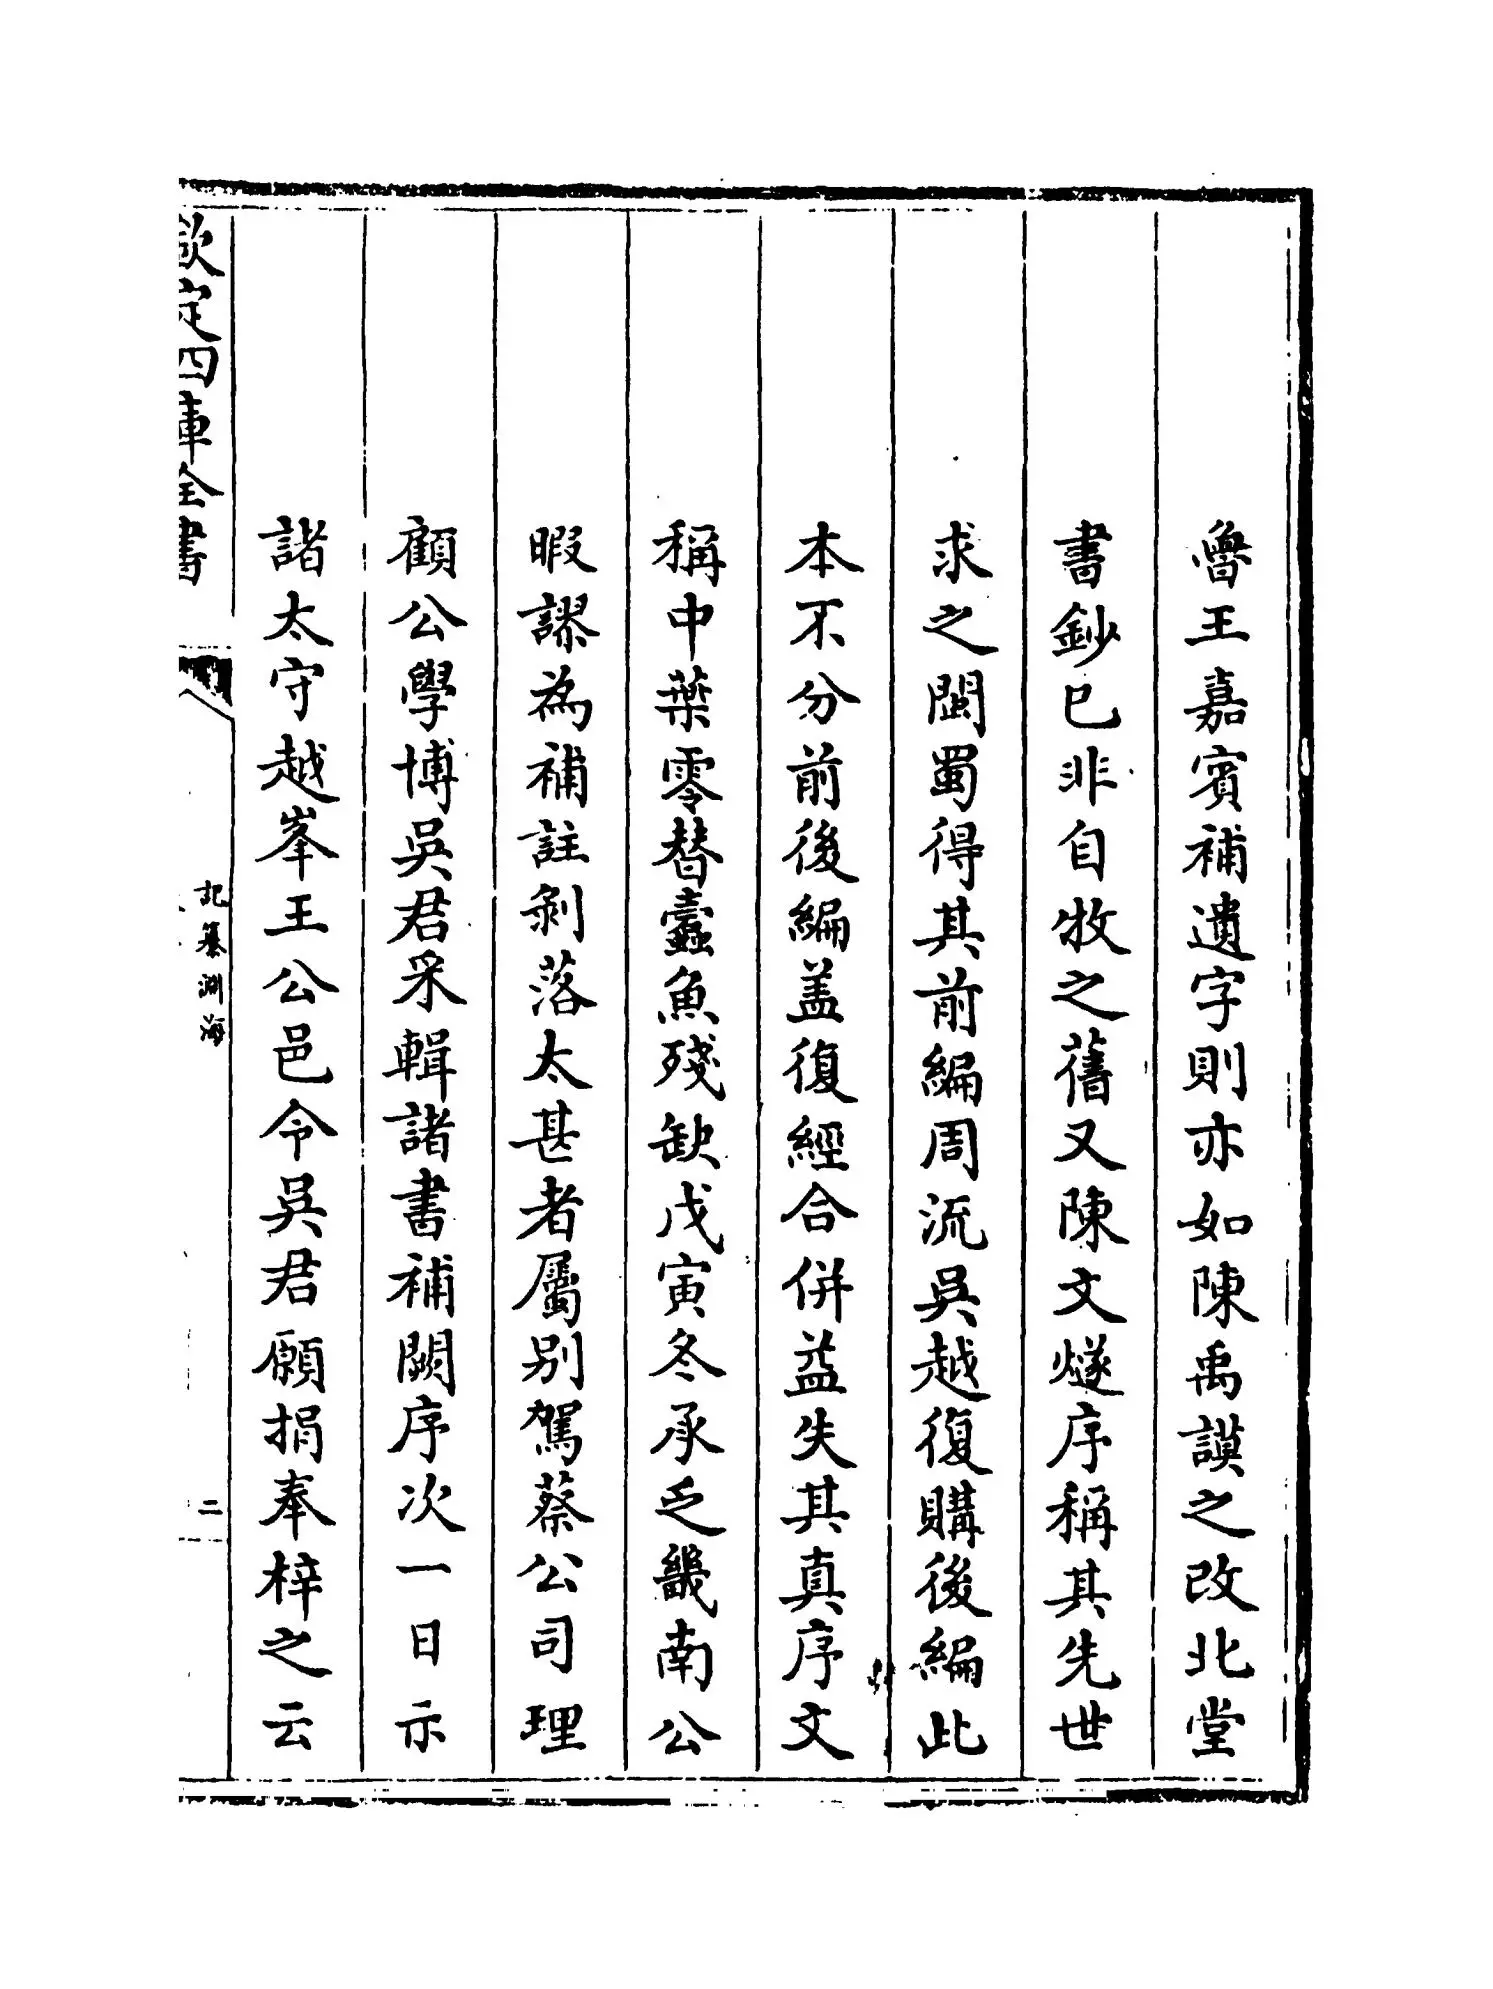 魯王嘉賓補遺字則亦如陳禹謨之改北堂
書鈔已非自牧之舊又陳文燧序稱其先世
求之閩蜀得其前編周流吳越復購後編此
本不分前後編盖復經合併益失其真序文
稱中葉零替蠹魚殘缺戊寅冬承乏畿南公
暇謬為補註剝落太甚者屬别駕蔡公司理
顧公學博吳君采輯諸書補闕序次一日示
諸太守越峯王公邑令吳君願捐奉梓之云
欽定四庫全書
記纂淵海
二